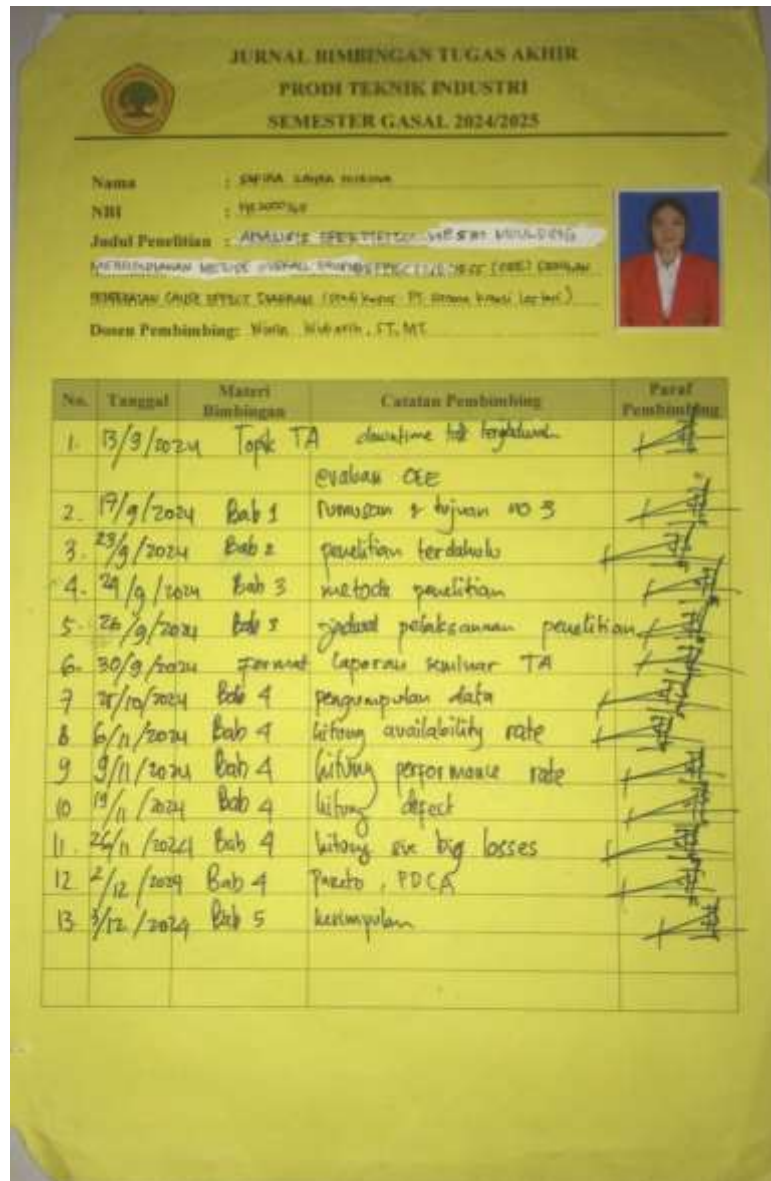 JURNAL BIMBINGAN TUGAS AKHIR
PRODI TEKNIK INDUSTRI
SEMESTER GASAL 2024/2025
Nama :
NBI :
Judul Penelitian : ANALISIS MESIN MOULDING
MENGGUNAKAN METODE OVERALL (OEE) DENGAN
CAUSE EFFECT DIAGRAM (Studi Kasus : PT.
Dosen Pembimbing: ST, MT
No. Tanggal Materi Bimbingan Catatan Pembimbing Paraf Pembimbing
1. 13/9/2024 Topik TA downtime
evaluasi OEE
2. 17/9/2024 Bab 1 rumusan & tujuan no 3
3. 23/9/2024 Bab 2 penelitian terdahulu
4. 24/9/2024 Bab 3 metode penelitian
5. 26/9/2024 Bab 3 jadwal pelaksanaan penelitian
6. 30/9/2024 Format Laporan seminar TA
7 /10/2024 Bab 4 pengumpulan data
8 6/11/2024 Bab 4 hitung availability rate
9 9/11/2024 Bab 4 hitung performance rate
10 19/11/2024 Bab 4 hitung defect
11. /11/2024 Bab 4 hitung six big losses
12 2/12/2024 Bab 4 Pareto, PDCA
13. 3/12/2024 Bab 5 kesimpulan